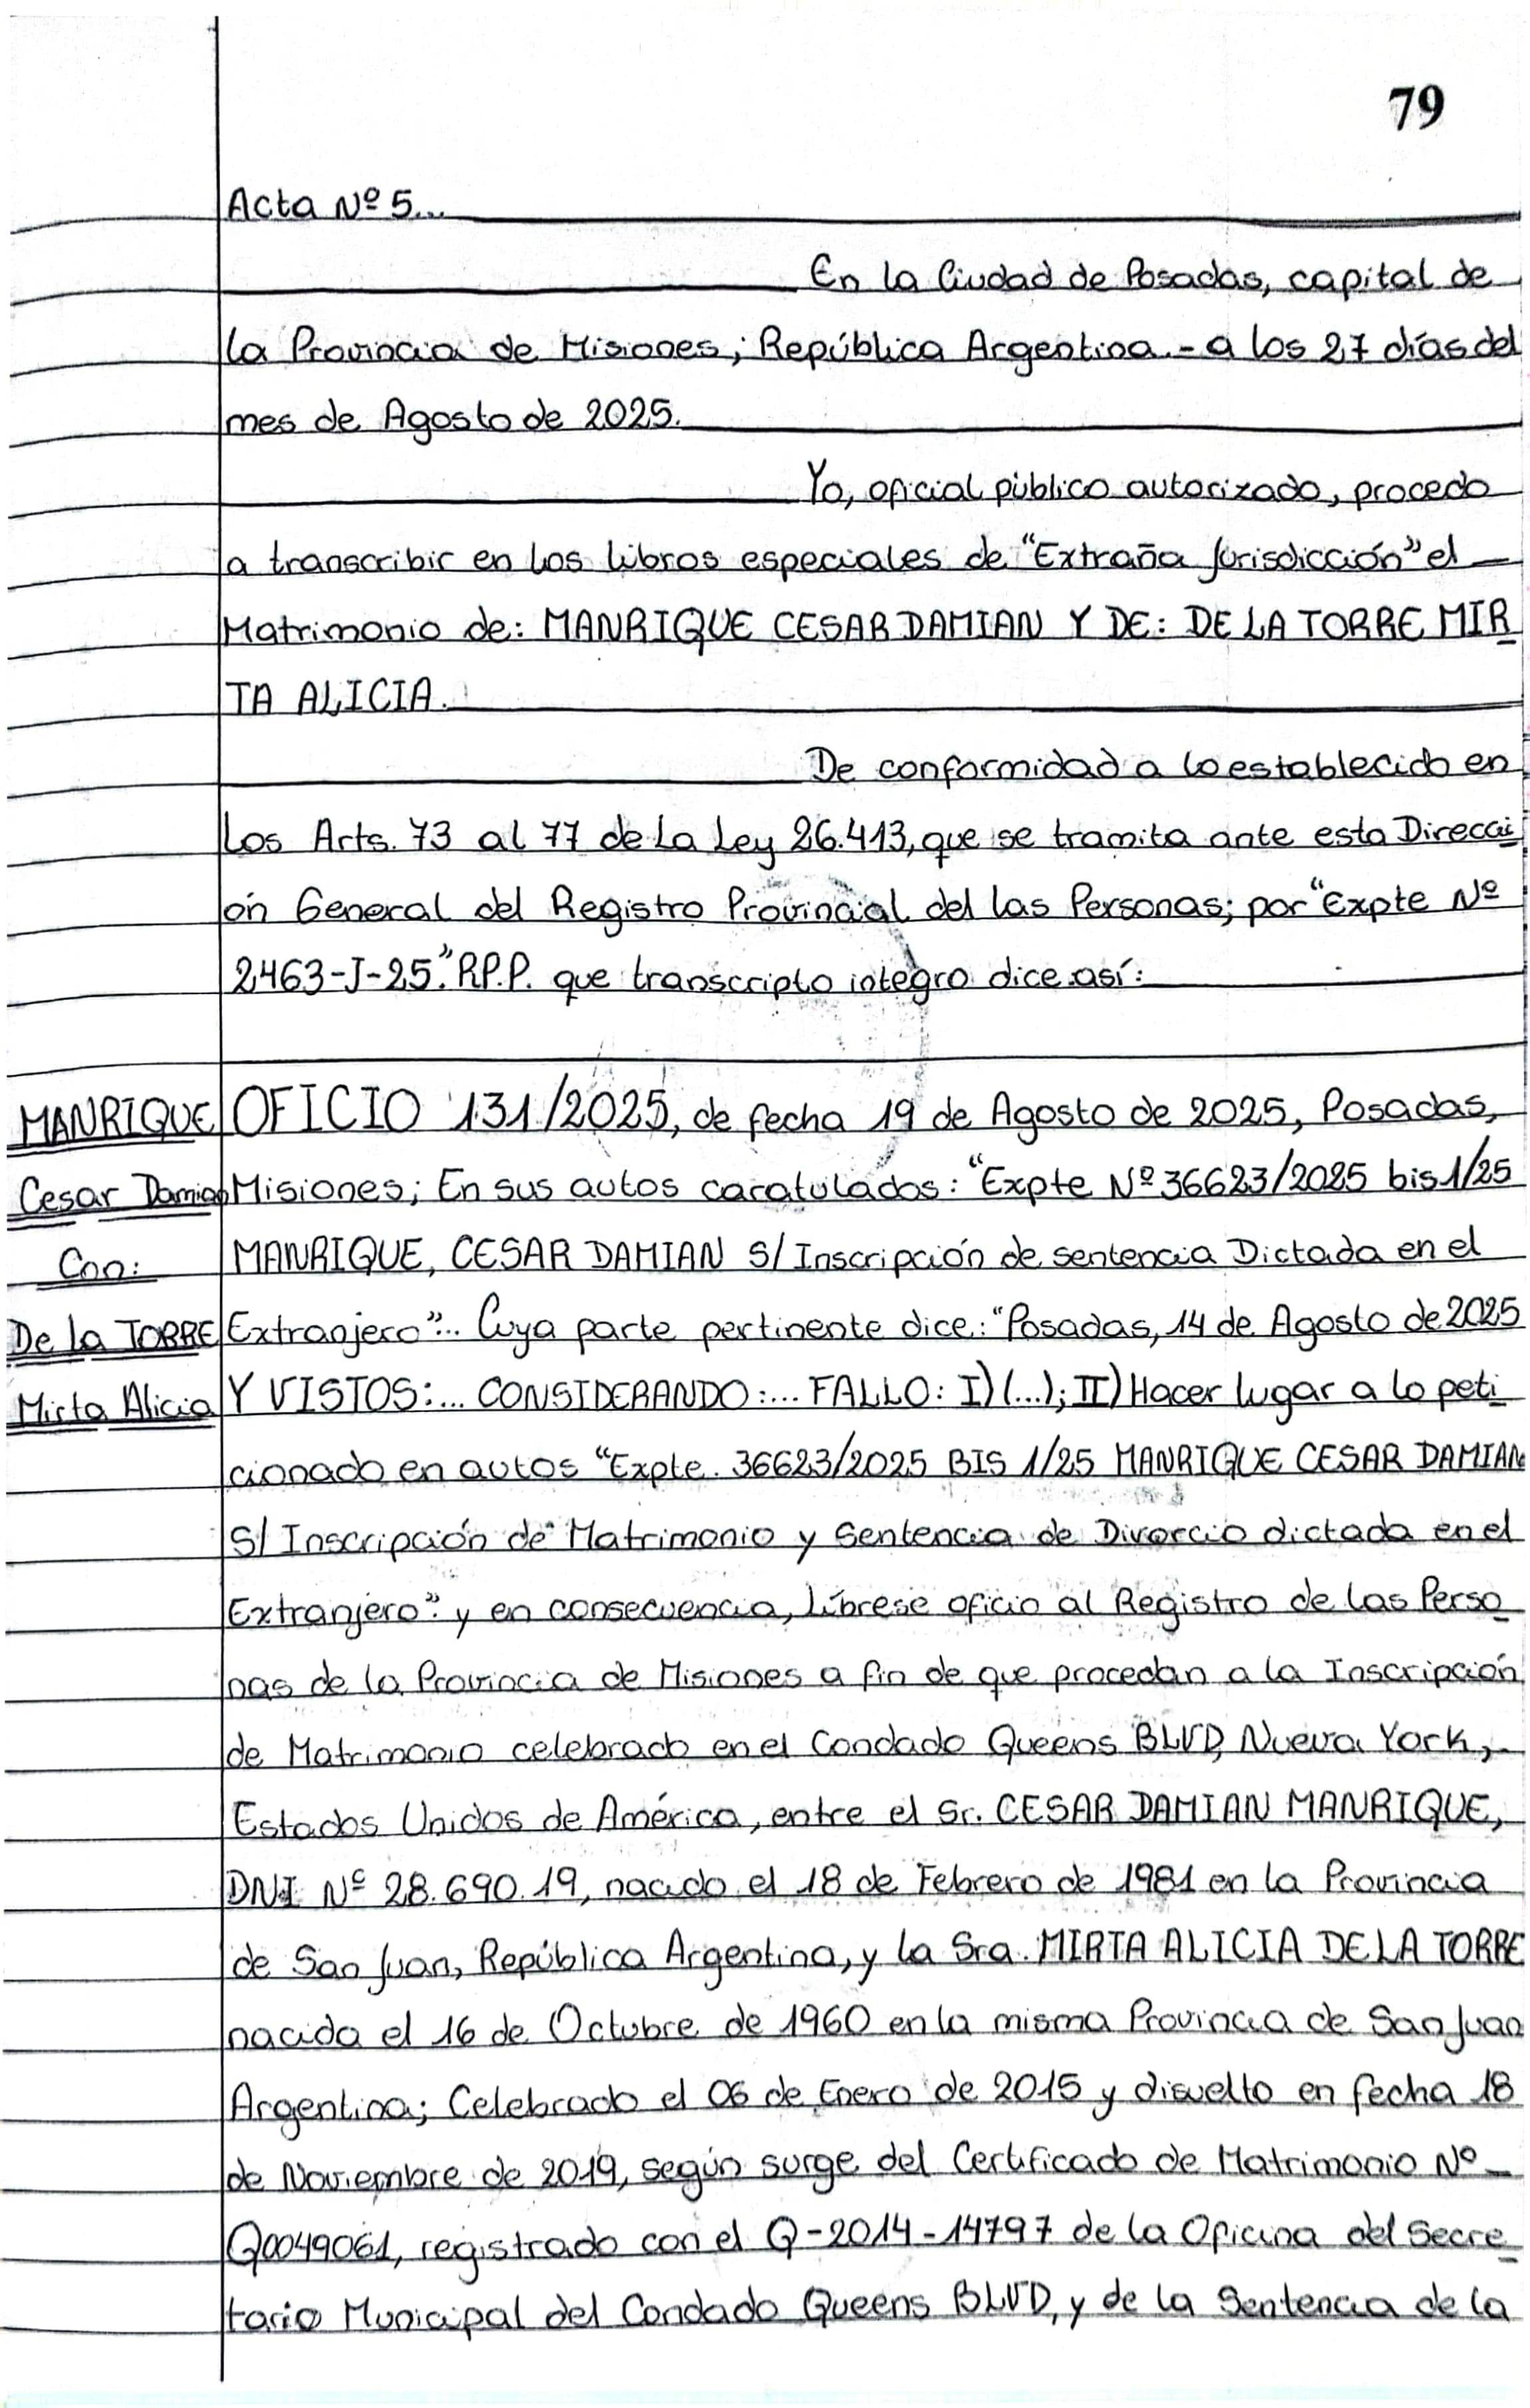 79
Acta Nº 5...
En la Ciudad de Posadas, capital de
la Provincia de Misiones; República Argentina.- a los 27 días del
mes de Agosto de 2025.
Yo, oficial público autorizado, procedo
a transcribir en los libros especiales de "Extraña Jurisdicción" el
Matrimonio de: MANRIQUE CESAR DAMIAN Y DE: DE LA TORRE MIR
TA ALICIA.
De conformidad a lo establecido en
los Arts. 73 al 77 de la Ley 26.413, que se tramita ante esta Direcci
ón General del Registro Provincial del las Personas; por "Expte Nº
2463-J-25." R.P.P. que transcripto integro dice así:
MANRIQUE
Cesar Damian
Con:
De la TORRE
Mirta Alicia
OFICIO 131/2025, de fecha 19 de Agosto de 2025, Posadas,
Misiones; En sus autos caratulados: "Expte Nº 36623/2025 bis 1/25
MANRIQUE, CESAR DAMIAN S/ Inscripción de sentencia Dictada en el
Extranjero"... Cuya parte pertinente dice: "Posadas, 14 de Agosto de 2025
Y VISTOS:... CONSIDERANDO:... FALLO: I) (...); II) Hacer lugar a lo peti
cionado en autos "Expte. 36623/2025 BIS 1/25 MANRIQUE CESAR DAMIAN
S/ Inscripción de Matrimonio y Sentencia de Divorcio dictada en el
Extranjero". y en consecuencia, líbrese oficio al Registro de las Perso
nas de la Provincia de Misiones a fin de que procedan a la Inscripción
de Matrimonio celebrado en el Condado Queens BLVD, Nueva York,
Estados Unidos de América, entre el Sr. CESAR DAMIAN MANRIQUE,
DNI Nº 28.690.19, nacido el 18 de Febrero de 1981 en la Provincia
de San Juan, República Argentina, y la Sra. MIRTA ALICIA DE LA TORRE
nacida el 16 de Octubre de 1960 en la misma Provincia de San Juan
Argentina; Celebrado el 06 de Enero de 2015 y disuelto en fecha 18
de Noviembre de 2019, según surge del Certificado de Matrimonio Nº
Q0049061, registrado con el Q-2014-14797 de la Oficina del Secre
tario Municipal del Condado Queens BLVD, y de la Sentencia de la